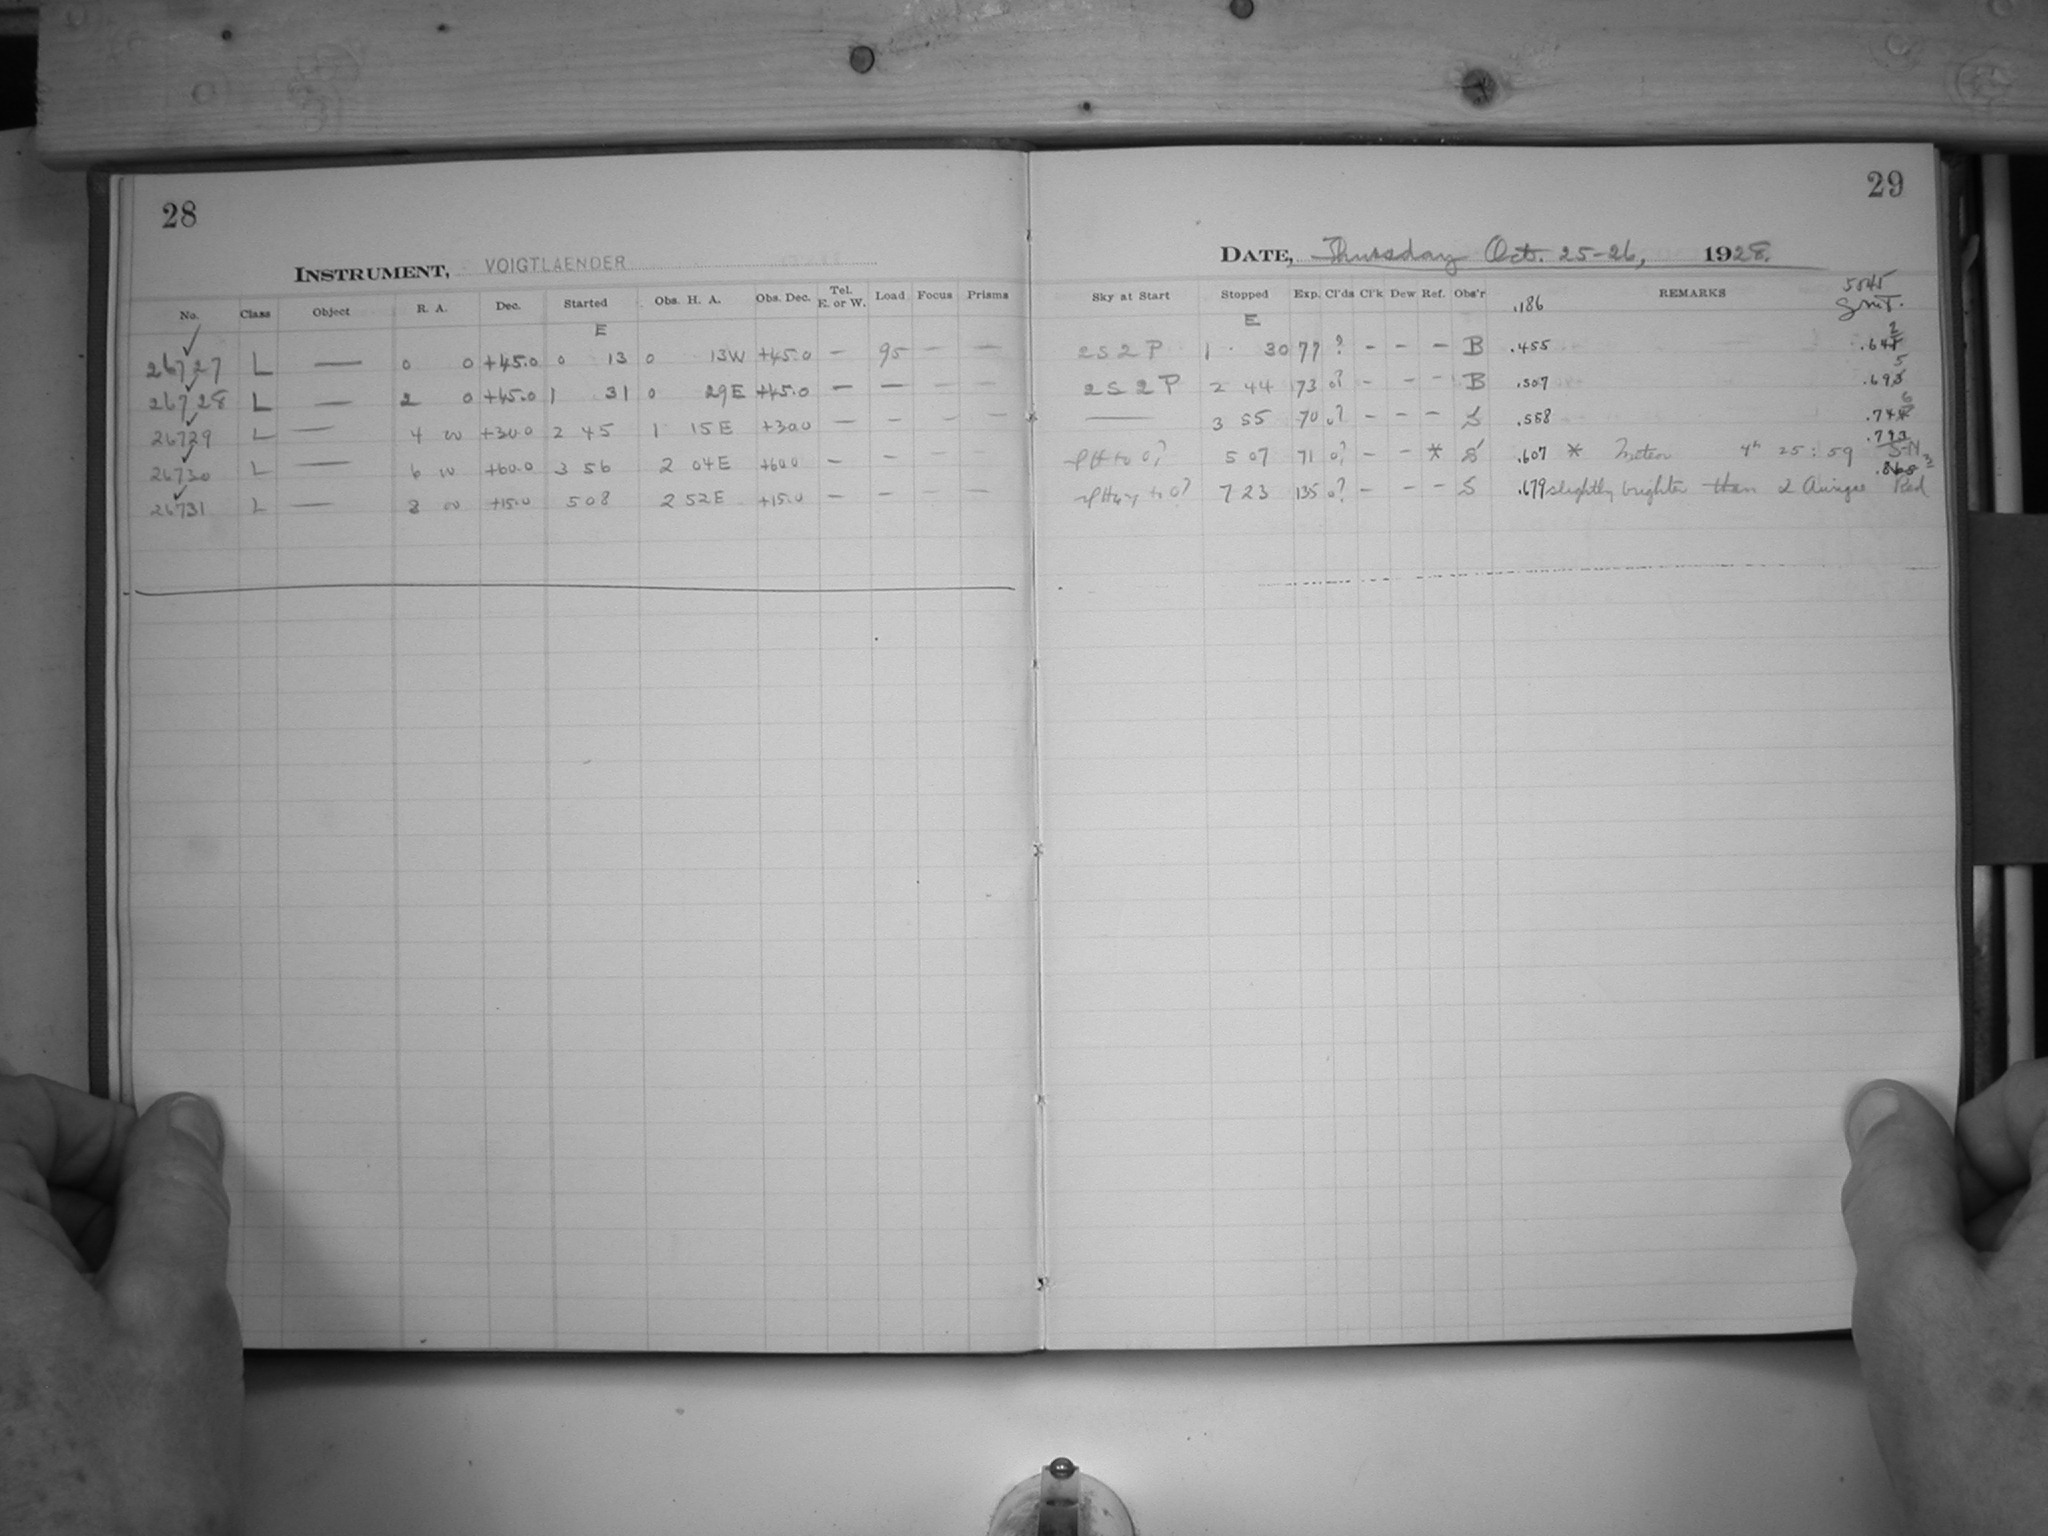 28
INSTRUMENT, VOIGTLAENDER
No. Class Object R. A. Dec. Started Obs. H. A. Obs. Dec. Tel. E. or W. Load Focus Prisms
E
26727 L — 0 0 +45.0 0 13 0 13W +45.0 — 95 — —
26728 L — 2 0 +45.0 1 31 0 29E +45.0 — — — —
26729 L — 4 00 +30.0 2 45 1 15E +30.0 — — — —
26730 L — 6 00 +60.0 3 56 2 04E +60.0 — — — —
26731 L — 8 00 +15.0 5 08 2 52E +15.0 — — — —
29
DATE, Thursday Oct. 25-26, 1928.
Sky at Start Stopped Exp. Cl'ds Cl'k Dew Ref. Obs'r REMARKS
E .186 G.M.T.
2S 2P 1 30 77 ? - - - B .455
2S 2P 2 44 73 0? - - - B .507
— 3 55 70 0? - - - S .558
to 0? 5 07 71 0? - - * S .607 * Meteor 4h 25:59 S-N
to 0? 7 23 135 0? - - - S .679 slightly brighter than 2 Aurigae Red